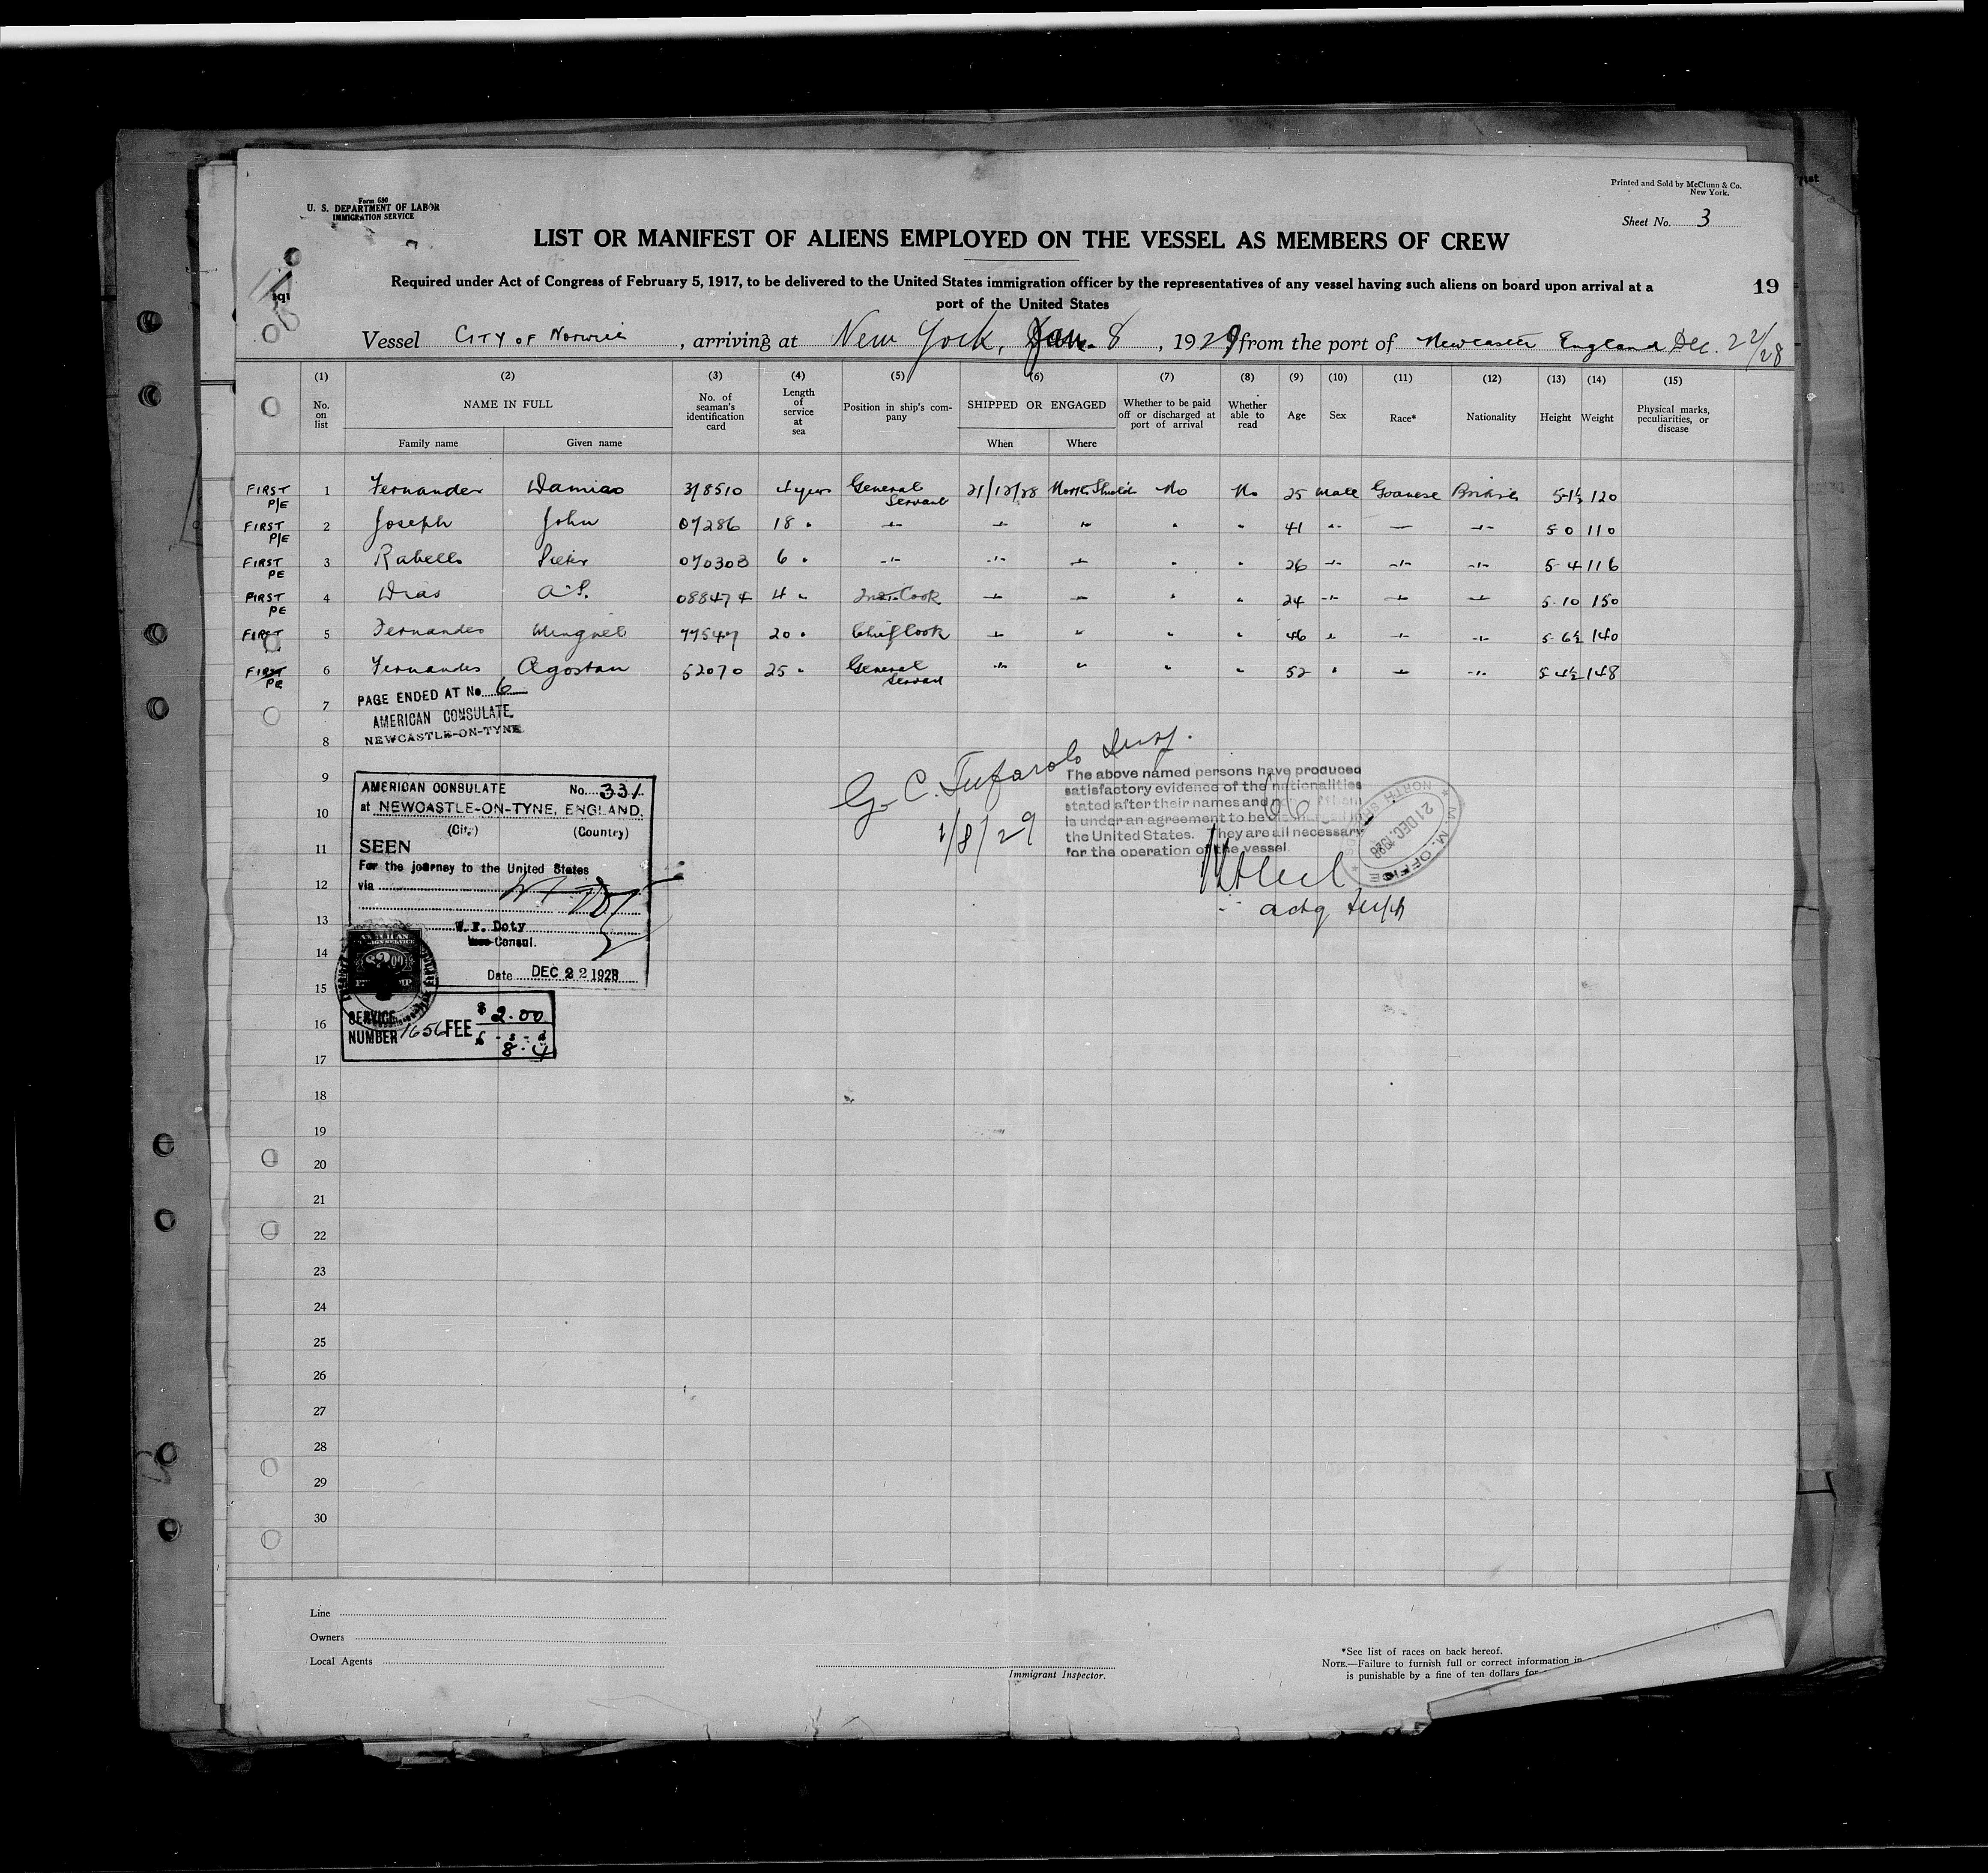 Form 680
U. S. DEPARTMENT OF LABOR
IMMIGRATION SERVICE
Printed and Sold by McClunn & Co.
New York.
Sheet No. 3
LIST OR MANIFEST OF ALIENS EMPLOYED ON THE VESSEL AS MEMBERS OF CREW
Required under Act of Congress of February 5, 1917, to be delivered to the United States immigration officer by the representatives of any vessel having such aliens on board upon arrival at a
port of the United States
19
Vessel CITY OF Norwich, arriving at New York, Jan. 8, 1929 from the port of Newcastle England Dec. 22/28
(1) (2) (3) (4) (5) (6) (7) (8) (9) (10) (11) (12) (13) (14) (15)
No. on list NAME IN FULL No. of seaman's identification card Length of service at sea Position in ship's company SHIPPED OR ENGAGED Whether to be paid off or discharged at port of arrival Whether able to read Age Sex Race* Nationality Height Weight Physical marks, peculiarities, or disease
Family name Given name When Where
FIRST P/E 1 Fernandes Damiao 318510 4 years General Servant 21/12/28 North Shields No No 25 Male Goanese British 5-1½ 120
FIRST P/E 2 Joseph John 07286 18 " -"- -"- " " " 41 -"- -"- -"- 5 0 110
FIRST PE 3 Rabello 070303 6 " -"- -"- -"- " " 26 -"- -"- -"- 5 4 116
FIRST PE 4 Dias A.S. 088474 4 " 2nd Cook -"- -"- " " 24 -"- -"- -"- 5 10 150
FIRST 5 Fernandes Minguel 77547 20 " Chief Cook -"- " " " 46 " -"- -"- 5 6½ 140
FIRST PE 6 Fernandes Agostan 52070 25 " General Servant -"- " " " 52 " -"- -"- 5 4½ 148
7
PAGE ENDED AT No. 6
AMERICAN CONSULATE
NEWCASTLE-ON-TYNE
8
9
10
11
12
13
14
15
16
17
18
19
20
21
22
23
24
25
26
27
28
29
30
AMERICAN CONSULATE No. 331
at NEWCASTLE-ON-TYNE, ENGLAND.
(City) (Country)
SEEN
For the journey to the United States
via
W. F. Doty
Vice-Consul.
Date DEC 22 1928
SERVICE NUMBER 1656 FEE $ 2.00
£ - s - d
8 - 4
G. C. Tufarolo Insp.
1/8/29
The above named persons have produced
satisfactory evidence of the nationalities
stated after their names and
is under an agreement to be
the United States. They are all necessary
for the operation of the vessel.
M. M. OFFICE
21 DEC. 1928
NORTH
actg Supt
Line
Owners
Local Agents
Immigrant Inspector.
*See list of races on back hereof.
NOTE.—Failure to furnish full or correct information in
is punishable by a fine of ten dollars for